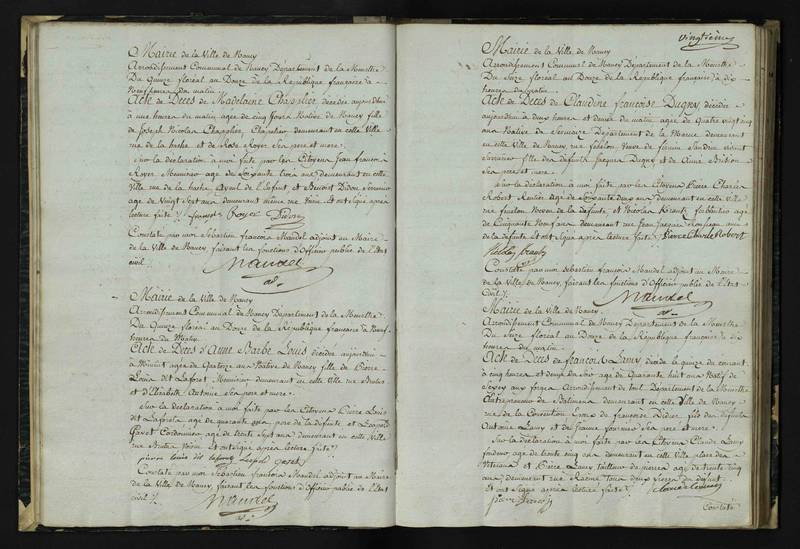 Mairie de la Ville de Nancy
Arrondissement Communal de Nancy Departement de la Meurthe
Du Quinze floréal an Douze de la République française à
Neuf heures du matin
Acte de Deces de Madelaine Chapelier décédée aujourdhui
à une heure du matin age de cinq jours Native de Nancy fille
de Joseph Nicolas Chapelier, Chapelier demeurant en cette Ville
rue de la hache et de Rose Royer Ses pere et mere.
Sur la déclaration à moi faite par les Citoyens Jean françois
Royer Menuisier age de Soixante trois ans demeurant en cette
Ville rue de la hache Ayeul de l'Enfant et Benoist Didon
age de Vingt Sept ans demeurant même rue Voisin Et ont Signé après
lecture faite ./. françois Royer Didon
Constaté par moi Sébastien françois Mandel adjoint au Maire
de la Ville de Nancy, faisant les fonctions d'Officier public de l'Etat
civil ./.
Mandel
adt.
Mairie de la Ville de Nancy
Arrondissement Communal de Nancy Departement de la Meurthe
Du Quinze floréal an Douze de la République française à Neuf
heures du Matin
Acte de Deces d'Anne Barbe Louis décédée aujourdhui
à Minuit agée de Quatorze ans Native de Nancy fille de Pierre
Louis dit Laforet Menuisier demeurant en cette Ville rue
et d'Elisabeth Antoine Ses pere et mere.
Sur la déclaration à moi faite par les Citoyens Pierre Louis
dit Laforêt age de quarante ans, pere de la défunte et Leopold
Gazet Cordonnier age de trente Sept ans demeurant en cette Ville
rue Voisin et ont Signé après lecture faite ./.
pierre louis dit laforest Leopold gazet
Constaté par moi Sébastien françois Mandel adjoint au Maire
de la Ville de Nancy, faisant les fonctions d'Officier public de l'Etat
civil ./.
Mandel
adt.
Vingtième
Mairie de la Ville de Nancy
Arrondissement Communal de Nancy Departement de la Meurthe
Du Seize floréal an Douze de la République française à dix
heures du matin
Acte de Deces de Claudine françoise Dugny décédée
aujourdhui à deux heures et demie du matin age de quatre vingt cinq
ans Native de Sermaize Departement de la Marne demeurant
en cette Ville de Nancy rue fénelon Veuve de firmin Sandrin vivant
Serrurier fille des défunts Jacques Dugny et de Anne
Ses pere et mere.
Sur la déclaration à moi faite par les Citoyens Pierre Charles
Robert Rentier age de Soixante deux ans demeurant en cette Ville
rue fénelon Neveu de la défunte et Nicolas Krantz ferblantier age
de Cinquante Neuf ans demeurant rue Jean Jacques Rousseau
de la défunte Et ont Signé après lecture faite ./. Pierre Charles Robert
Nicolas Krantz
Constaté par moi Sébastien françois Mandel adjoint au Maire
de la Ville de Nancy, faisant les fonctions d'Officier public de l'Etat
Civil ./.
Mandel
adt.
Mairie de la Ville de Nancy
Arrondissement Communal de Nancy Departement de la Meurthe
Du Seize floréal an Douze de la République française à dix
heures du matin
Acte de Deces de françois Lamy décédé le quinze du courant
à cinq heures et demie du Soir age de Quarante huit ans Natif de
Sexey aux forges Arrondissement de toul Departement de la Meurthe
Entrepreneur de Batimens demeurant en cette Ville de Nancy
rue de la Constitution Epoux de françoise Didier fils des défunts
Antoine Lamy et de Jeanne Ses pere et mere.
Sur la déclaration à moi faite par les Citoyens Claude Lamy
fondeur age de trente cinq ans demeurant en cette Ville place des
et Pierre Lamy tailleur de pierres age de trente cinq
ans demeurant rue Racine tous deux freres du défunt
Et ont Signé après lecture faite ./. Claude Lamy
pierre Lamy
Constaté